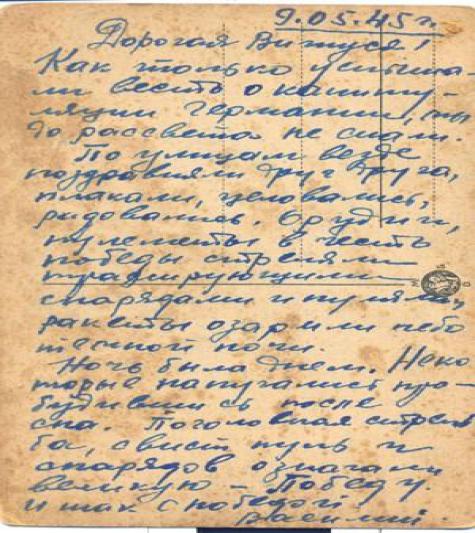 9.05.45 г.
Дорогая Витуся!
Как только услыша-
ли весть о капиту-
ляции Германии, мы
до рассвета не спали.
По улицам везде
поздравляли друг друга,
плакали, целовались,
радовались. Орудия,
пулеметы в честь
победы стреляли
трассирующими
снарядами и пулями,
ракеты озаряли небо
темной ночи.
Ночь была днем. Неко
торые напугались про-
будившись после
сна. Поголовная стрель
ба, свист пуль и
снарядов означали
великую – Победу.
И так с победой.
Василий.